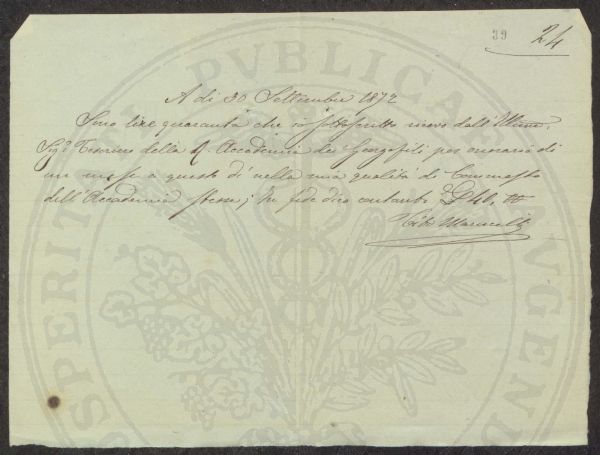 39 24
A dì 30 Settembre 1872
Sono lire quaranta che io sottoscritto ricevo dall'Illmo.
Sigr. Tesoriere della R. Accademia dei Georgofili per onorario di
un mese a questo dì nella mia qualità di Commesso
dell'Accademia stessa; In fede dico contanti £ 40.
PROSPERITATI PUBLICAE AUGENDAE